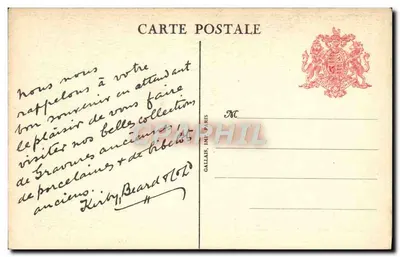 CARTE POSTALE
nous nous
rappelons à votre
bon souvenir en attendant
le plaisir de vous faire
visiter nos belles collections
de Gravures anciennes,
de porcelaines & de bibelots
anciens...
Kirby, Beard & Co Ld
M
GALLAIS, IMP. PARIS
CARTHAPHILE